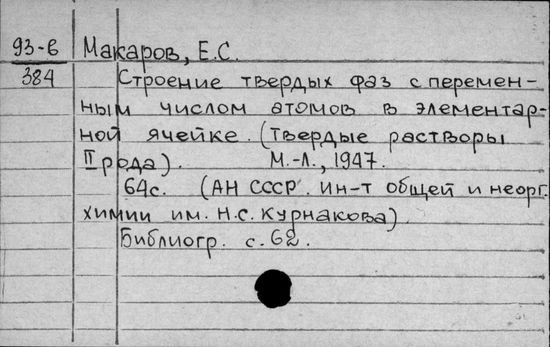 93-6 Макаров, Е.С.
384 Строение твердых фаз с перемен-
ным числом атомов в элементар-
ной ячейке. (Твердые растворы
II рода). М.-Л., 1947.
64с. (АН СССР. Ин-т общей и неорг.
химии им. Н.С. Курнакова)
Библиогр. с. 62.